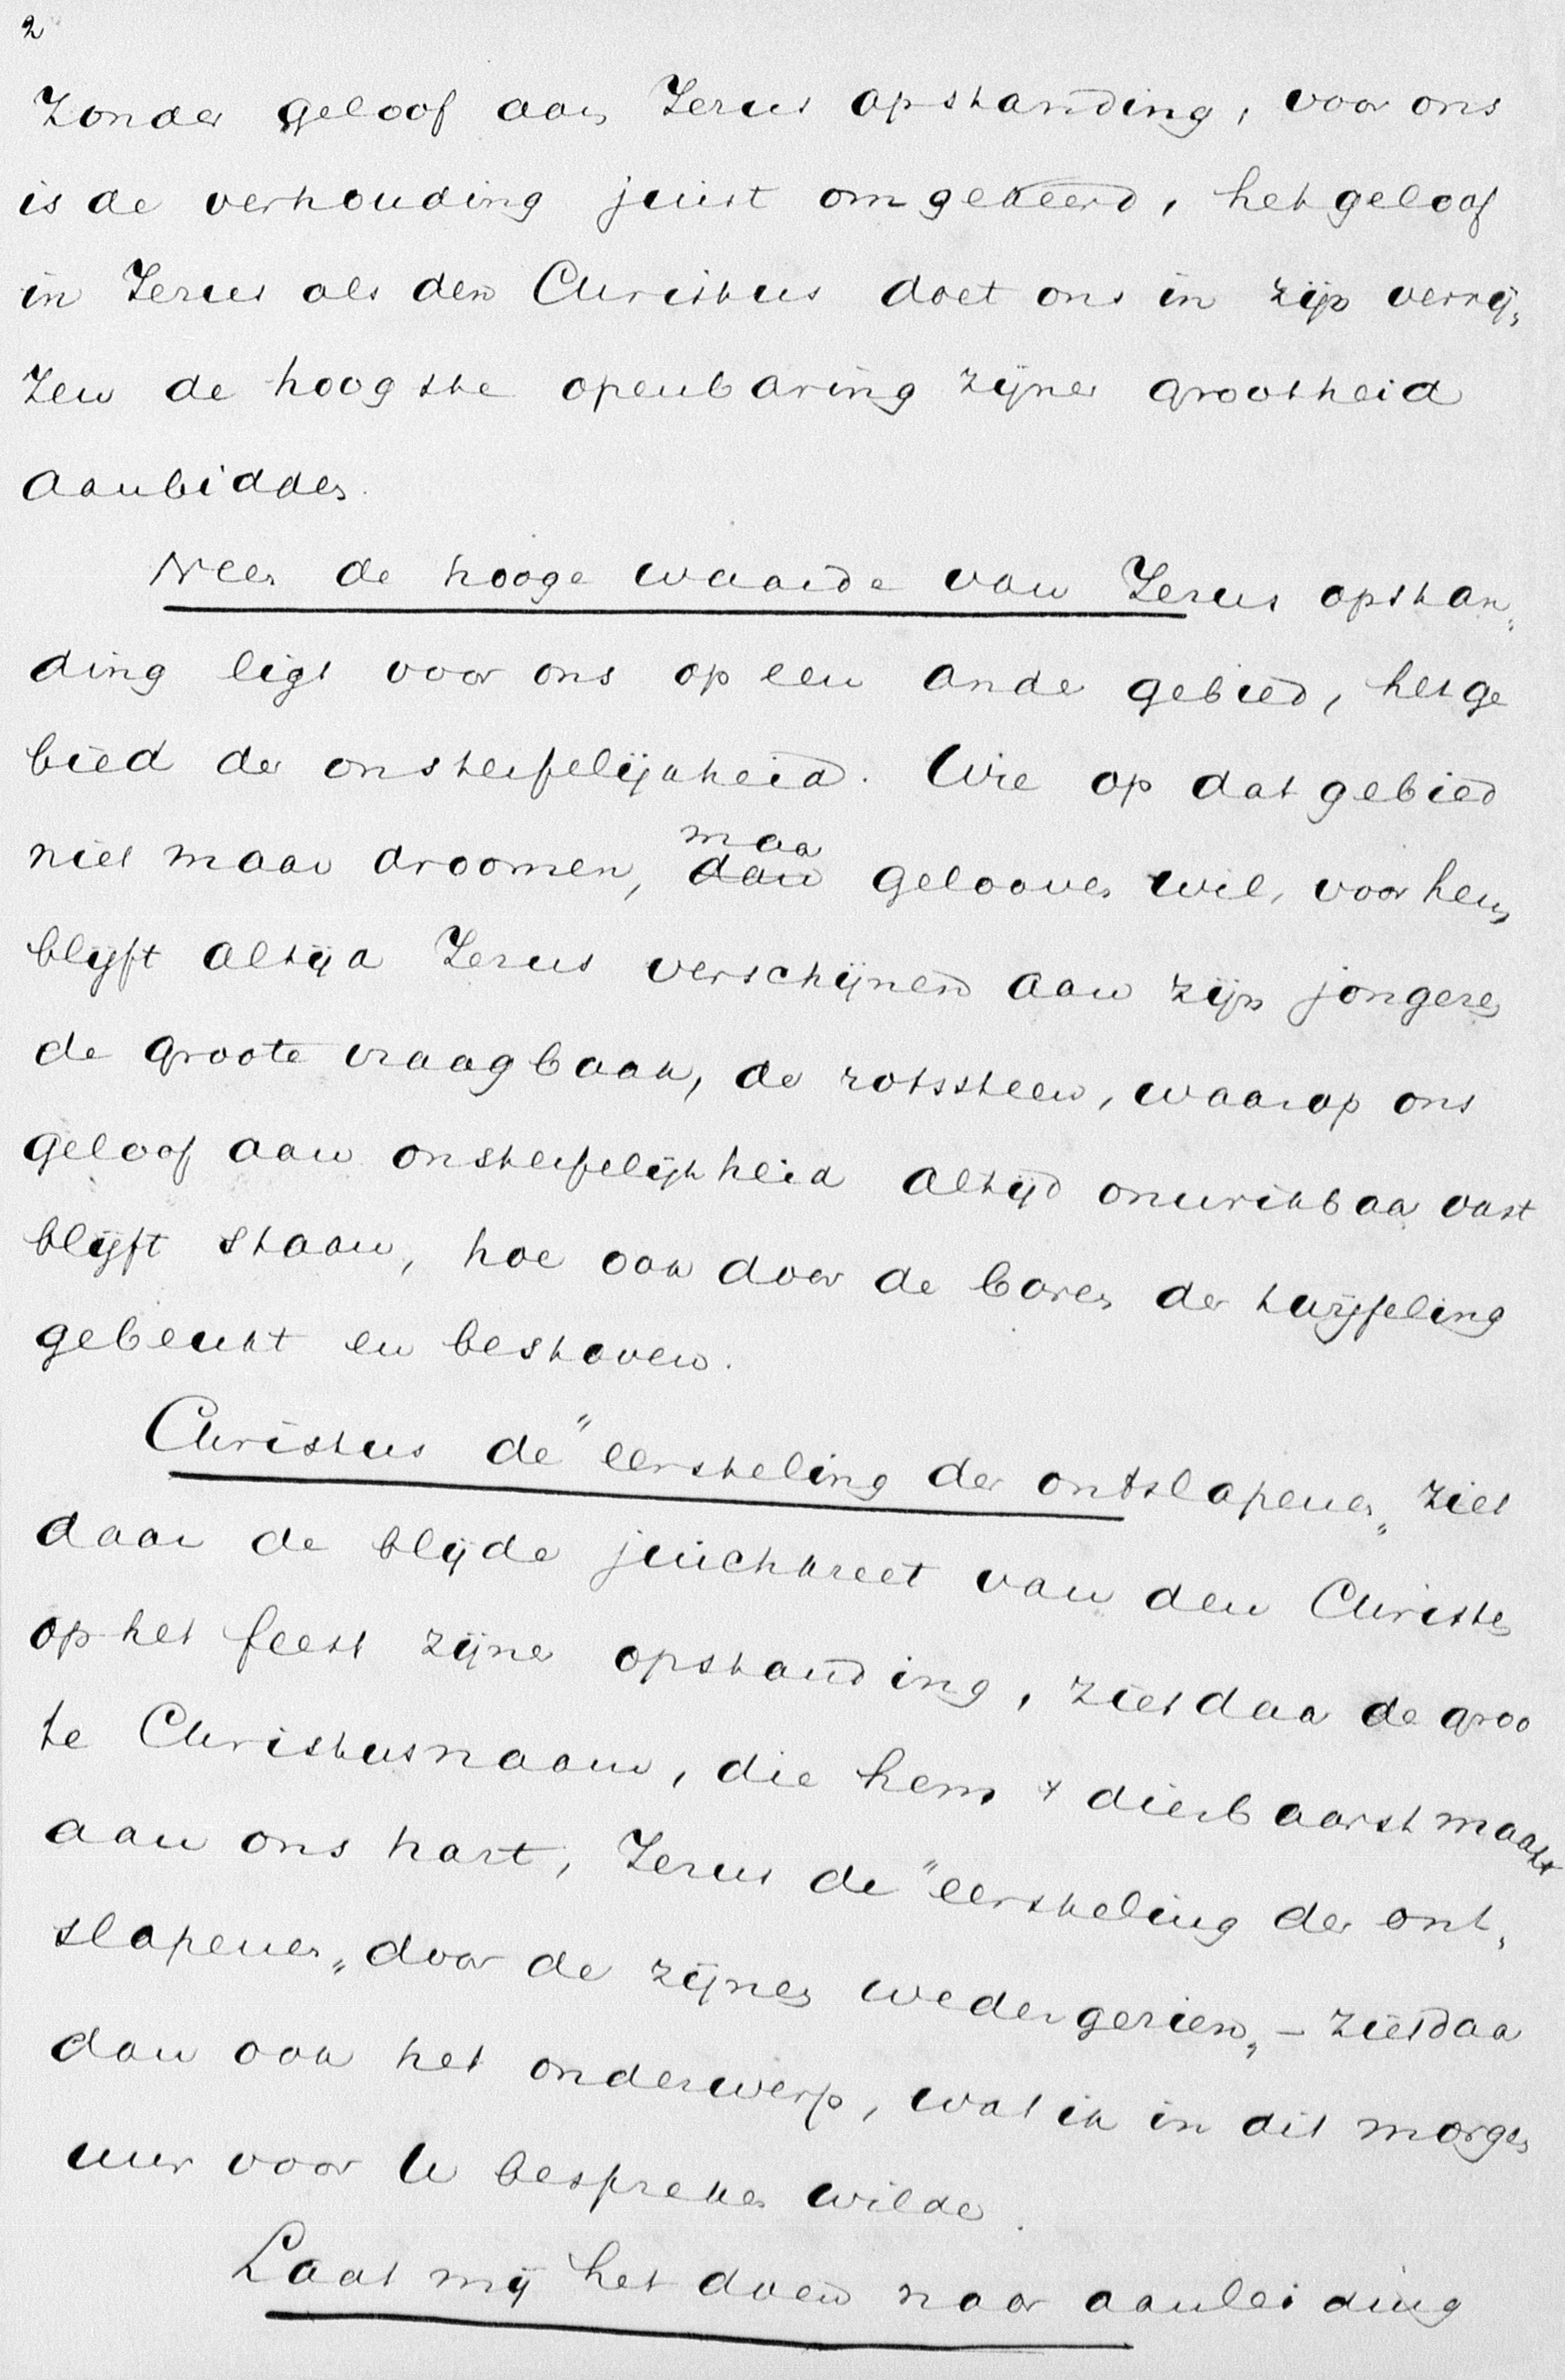 2
zonder geloof aan Jezus opstanding, voor ons
is de verhouding juist omgekeerd, het geloof
in Jezus als den Christus doet ons in zijn verrij„
zen de hoogste openbaring zijner grootheid
aanbidden.
Neen de hooge waarde van Jezus opstan„
ding ligt voor ons op een ander gebied, het ge
bied der onsterfelijkheid. Wie op dat gebied
maar
niet maar droomen, dan gelooven wil, voor hem
blijft altijd Jezus verschijnen aan zijn jongeren
de groote vraagbaak, de rotssteen, waarop ons
geloof aan onsterfelijkheid altijd onwrikbaar vast
blijft staan, hoe ook door de baren der twijfeling
gebeukt en bestoven.
Christus de "eersteling der ontslapenen„ ziet
daar de blijde juichkreet van den Christen
op het feest zijner opstanding, ziet daar de groo
te Christusnaam, die hem 't dierbaarst maakt
aan ons hart, Jezus de "eersteling der ont„
slapenen„ door de zijnen wedergezien„ – ziet daar
dan ook het onderwerp, wat ik in dit morgen
uur voor U bespreken wilde.
Laat mij het doen naar aanleiding